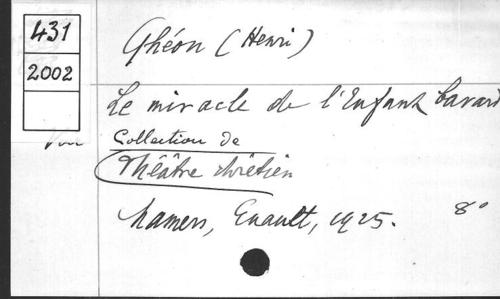 431
2002
Ghéon (Henri)
Le miracle de l'Enfant bavard
Voir
Collection de
Théâtre chrétien
Mamers, Enault, 1925. 8°